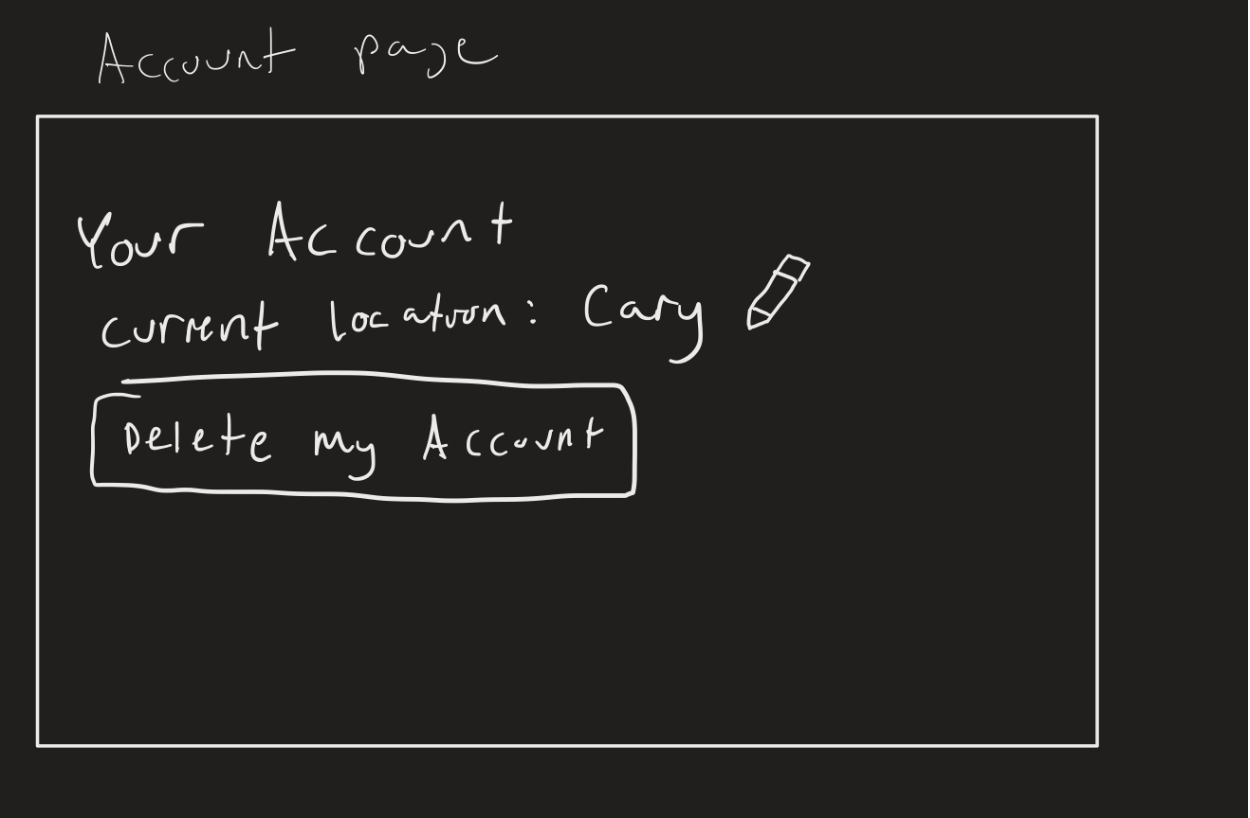 Account page
Your Account
current location: Cary
Delete my Account